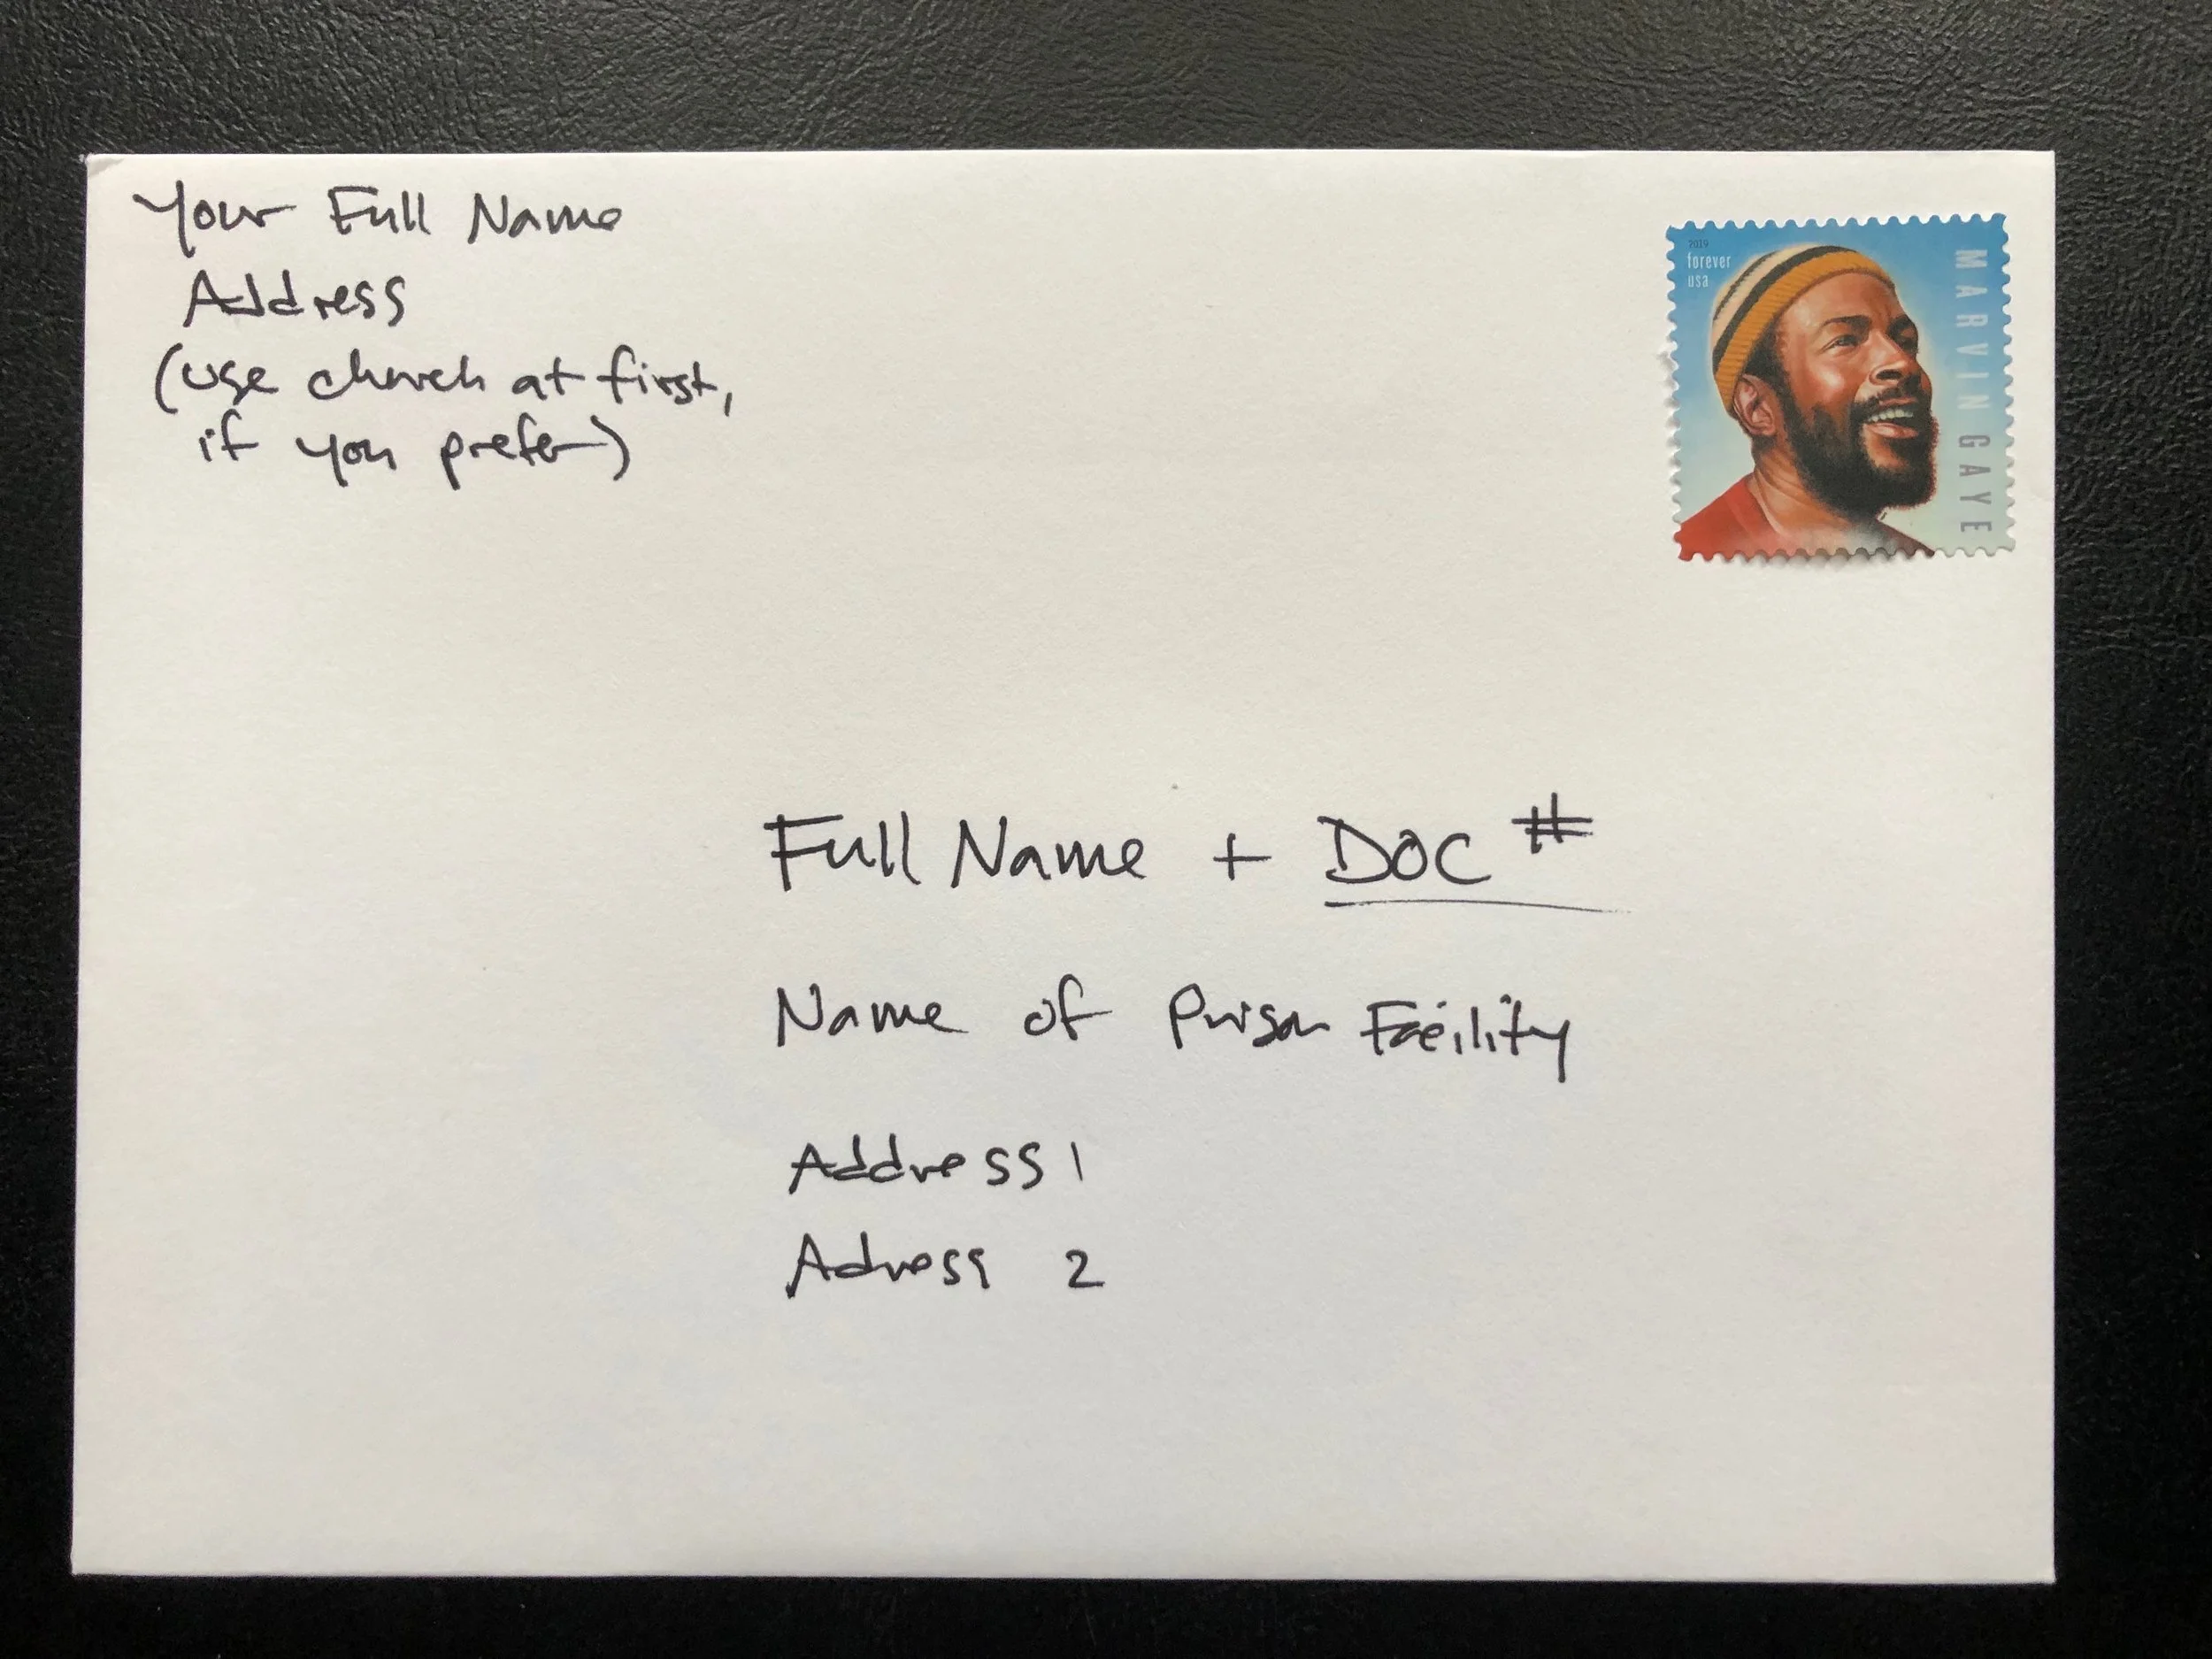 Your Full Name
Address
(use church at first,
if you prefer)
2019
forever
usa
MARVIN GAYE
Full Name + DOC #
Name of Prison Facility
Address 1
Adress 2